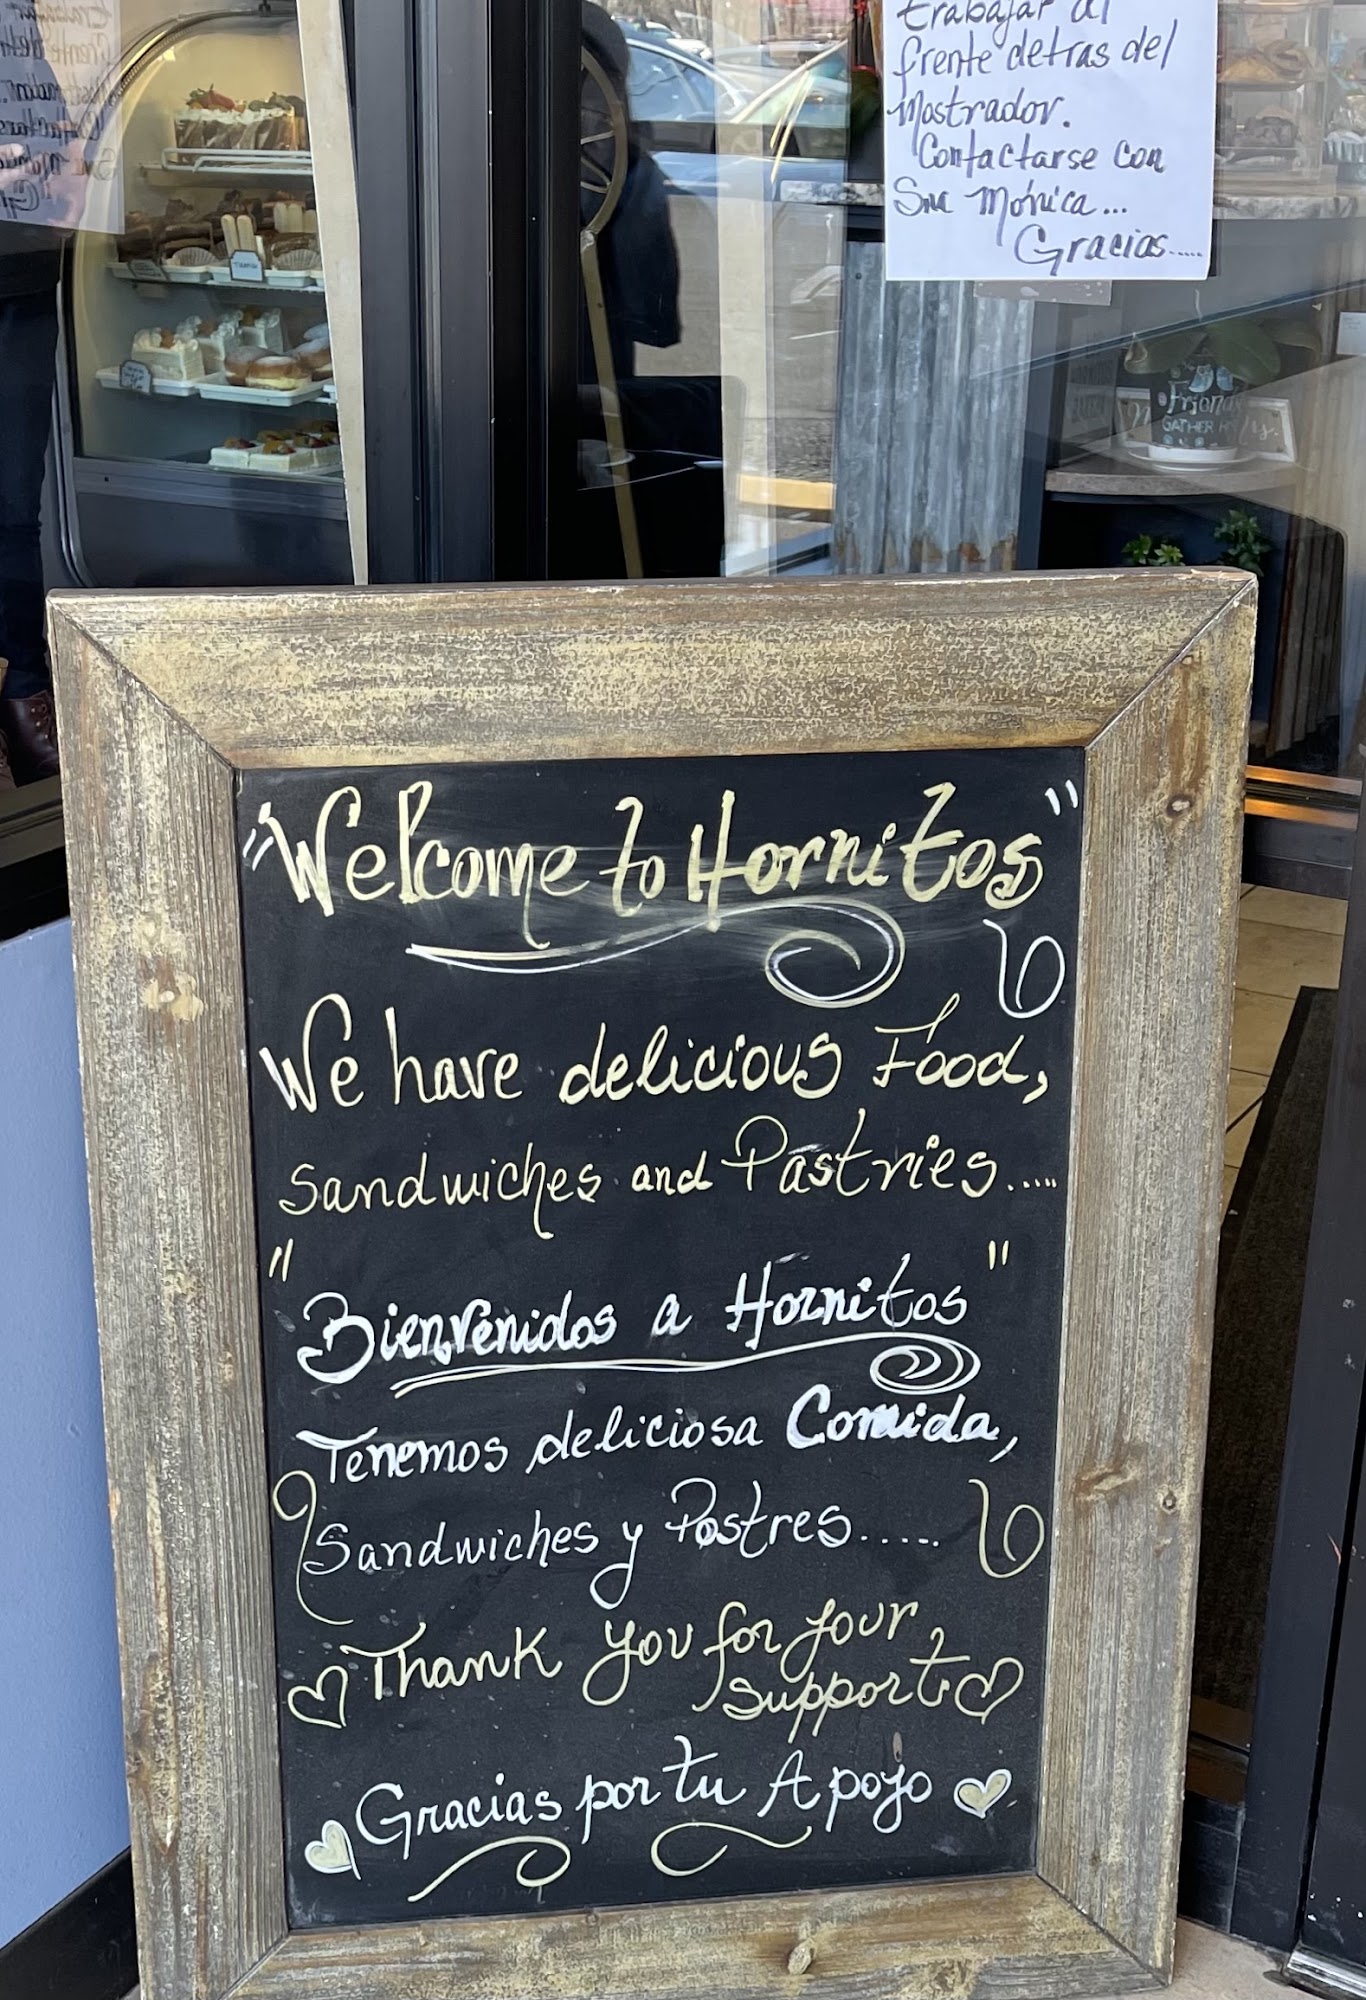 trabajar al
frente detras del
Mostrador.
Contactarse con
Sra Mónica...
Gracias.....
Friends
GATHER HERE
"Welcome to Hornitos"
We have delicious Food,
Sandwiches and Pastries.....
"Bienvenidos a Hornitos"
Tenemos deliciosa Comida,
Sandwiches y Postres.....
Thank you for your
support
Gracias por tu Apoyo